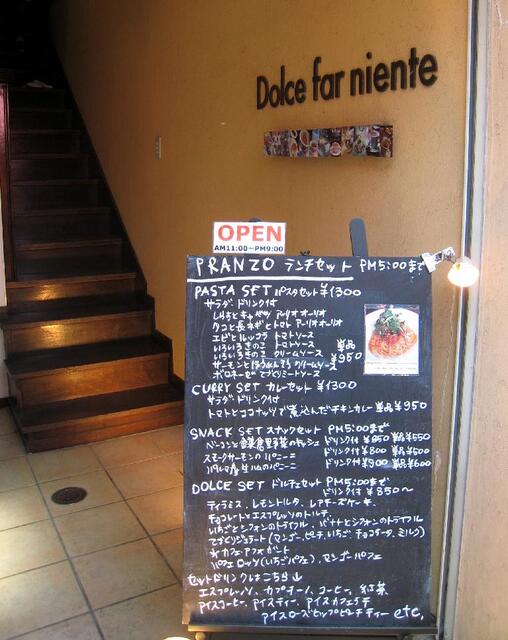 Dolce far niente
OPEN
AM11:00~PM9:00
PRANZO ランチセット PM5:00まで
PASTA SET パスタセット ¥1300
サラダ・ドリンク付
しらすとキャベツ アーリオ オーリオ
タコと長ネギとトマト アーリオ オーリオ
エビとルッコラ トマトソース
いろいろきのこ トマトソース 単品
いろいろきのこ クリームソース ¥950
サーモンとほうれんそう クリームソース
ボロネーゼ てづくりミートソース
CURRY SET カレーセット ¥1300
サラダ・ドリンク付
トマトとココナッツで煮込んだチキンカレー 単品 ¥950
SNACK SET スナックセット PM5:00まで
ベーコンと野菜のキッシュ ドリンク付 ¥850 単品 ¥550
スモークサーモンのパニーニ ドリンク付 ¥800 単品 ¥500
パルマ産生ハムのパニーニ ドリンク付 ¥900 単品 ¥600
DOLCE SET ドルチェセット PM5:00まで
ドリンク付 ¥850~
ティラミス、レモントルタ、レアチーズケーキ、
チョコレートとエスプレッソのトルテ、
いちごとシフォンのトライフル、バナナとシフォンのトライフル
てづくりジェラート(マンゴー、ピーチ、いちご、チョコラータ、ミルク)
*カフェアフォガート
パフェロッソ(いちごパフェ)、マンゴーパフェ
セットドリンクはこちら↓
エスプレッソ、カプチーノ、コーヒー、紅茶
アイスコーヒー、アイスティー、アイスカフェラテ
アイスローズヒップピーチティー etc.